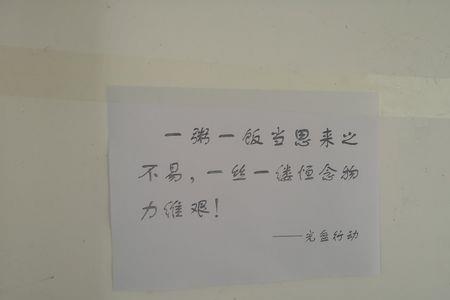 一粥一饭当思来之
不易，一丝一缕恒念物
力维艰！
——光盘行动